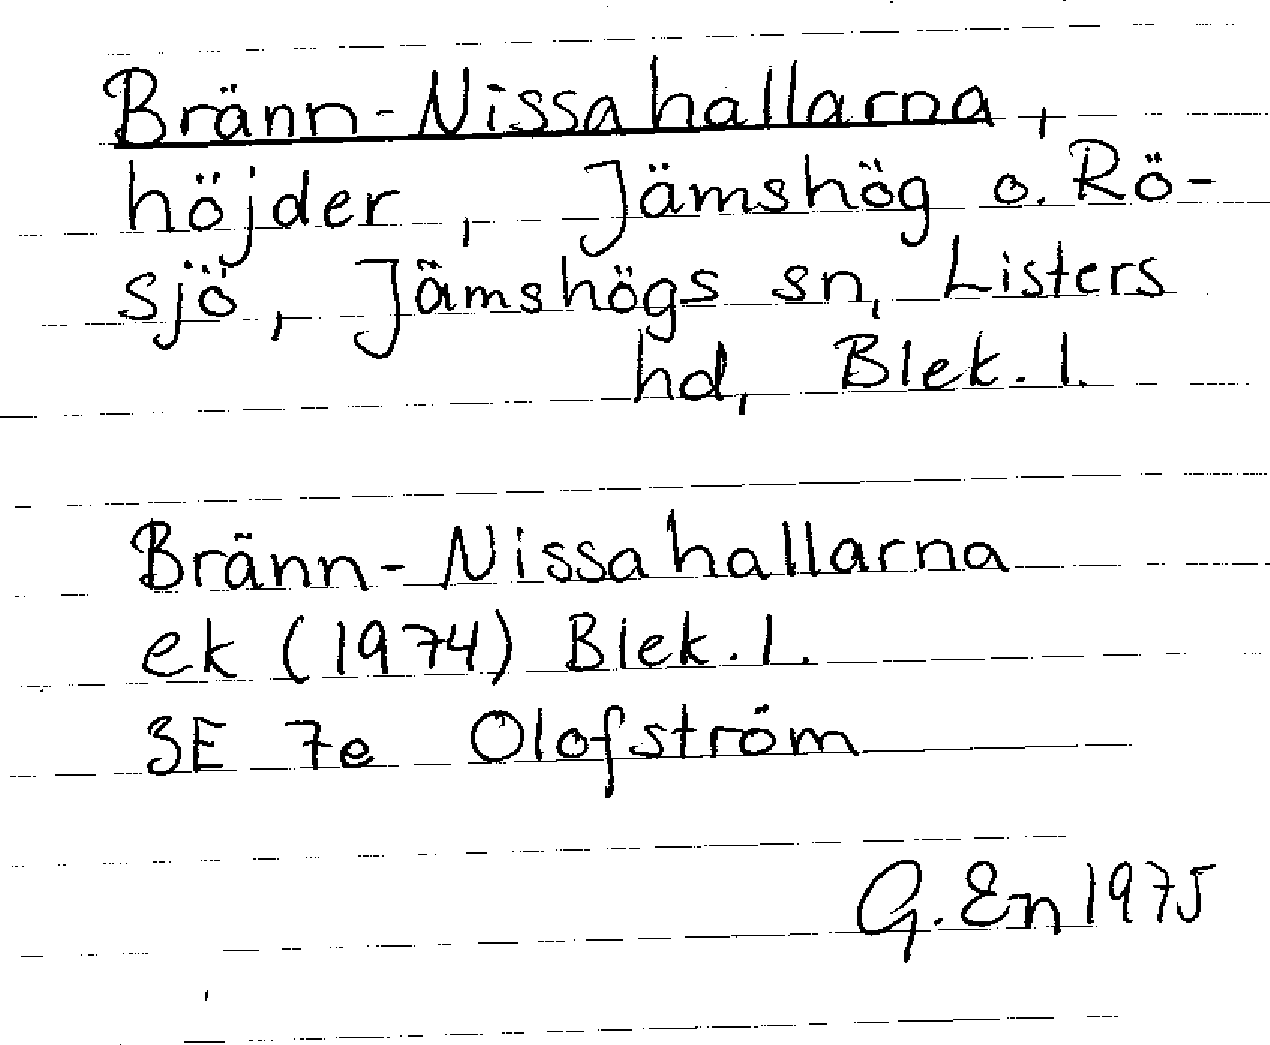 Bränn-Nissahallarna,
höjder, Jämshög o. Rö-
sjö, Jämshögs sn, Listers
hd, Blek. l.
Bränn-Nissahallarna
ek (1974) Blek. l.
3E 7e Olofström
G. En 1975